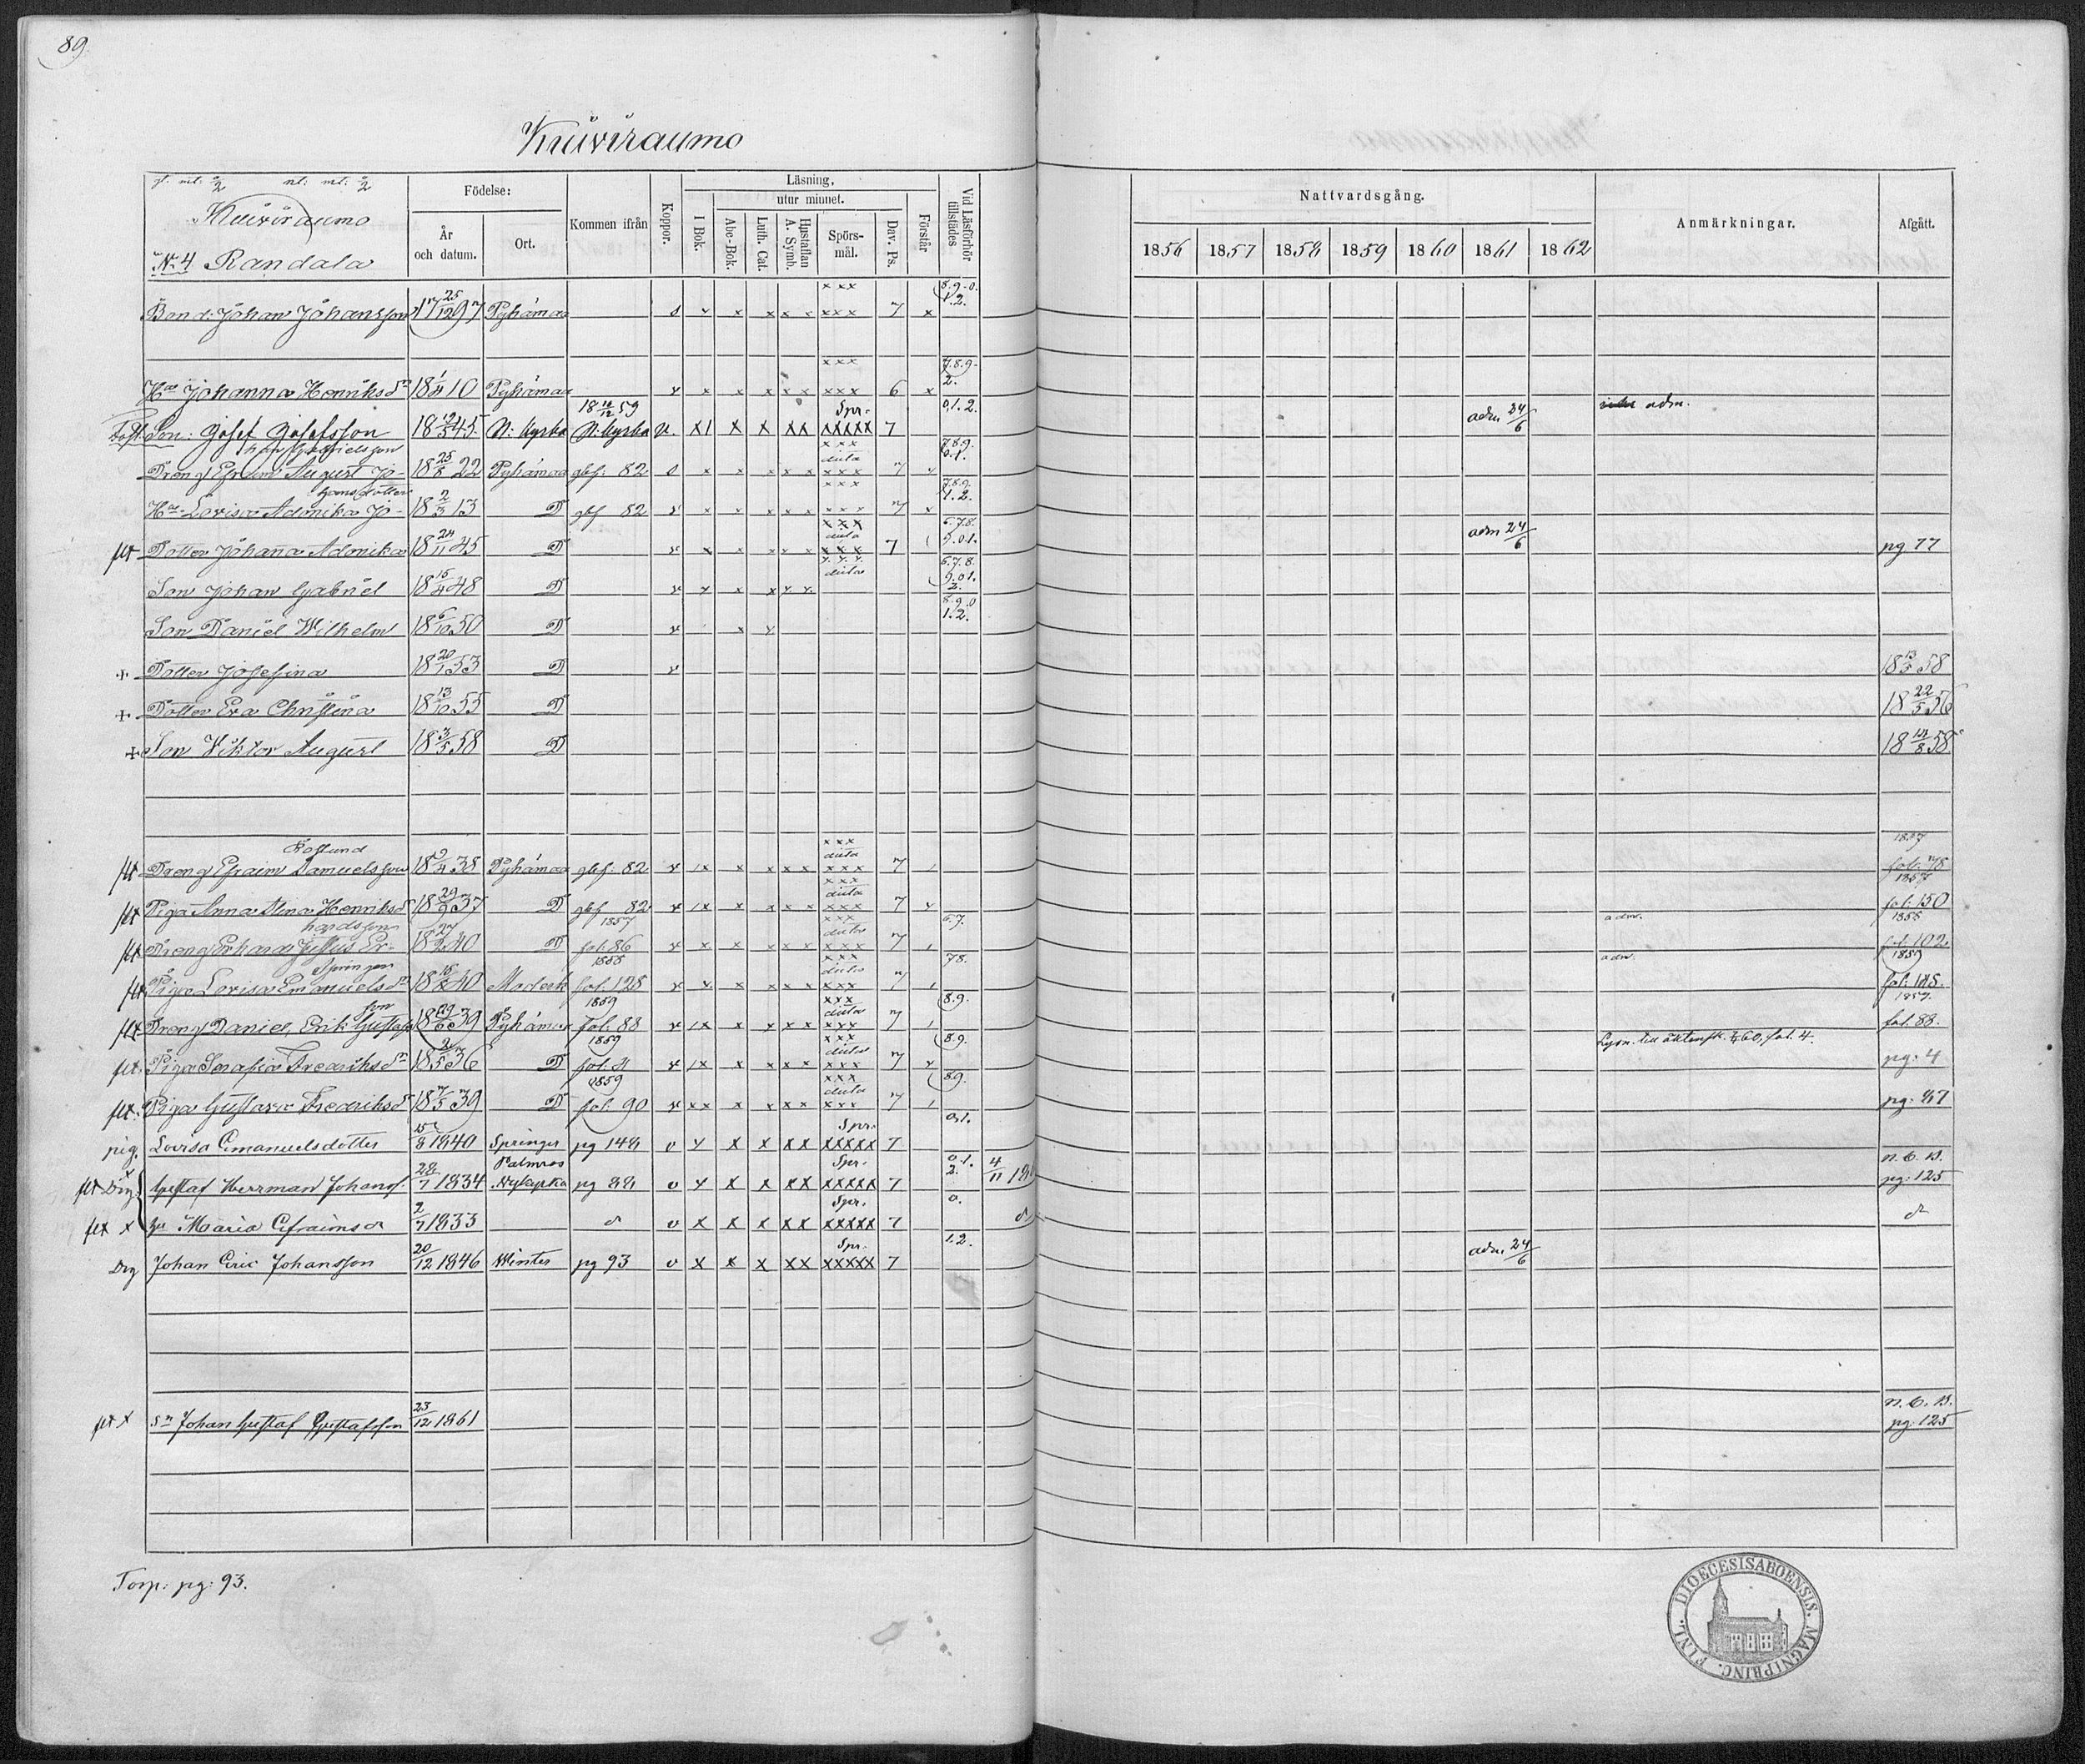 89.
Kuiviraumo
gl. mt: 1/2 nt: mt: 1/2
Kuiviraumo
No 4 Randala
Födelse:
År och datum.
Ort.
Kommen ifrån
Koppor.
Läsning,
utur minnet.
I Bok.
Abc-Bok.
Luth. Cat.
Hustaflan A. Symb.
Spörsmål.
Dav. Ps.
Förstår
Vid Läsförhör tillstädes
Nattvardsgång.
1856 1857 1858 1859 1860 1861 1862
Anmärkningar.
Afgått.
Bond. Johan Johansson 17 25/12 97 Pyhämaa 7 x 8.9.0. 1.2.
Hu Johanna Henriksdr 18 1/4 10 Pyhämaa 6 x 7.8.9. 2.
Fost. Son: Josef Josefsson 18 19/3 45. N: Kyrka 18 11/12 59 N: Kyrka v. x1 x x xx Spr. xxxxx 7 0.1.2. adm 24/6 adm.
Dreng Efraim August Johan Gabrielsson 18 25/8 22 Pyhämaa gbf: 82 0 7 7.8.9. 0.1.
Hu Lovisa Adonika Johansdotter 18 2/3 13 D gbf 82 7 x 7.8.9. 1.2.
flt Dotter Johana Adonika 18 24/11 45 D 7 6.7.8. 9.0.1. adm 24/6 pg 77
Son Johan Gabriel 18 15/4 48 D 6.7.8. 9.0.1. 2.
Son Daniel Wilhelm 18 6/10 50 D 8.9.0 1.2.
+ Dotter Josefina 18 20/1 53 D 18 13/5 58
+ Dotter Eva Christina 18 13/10 55 D 18 22/5 56
+ Son Viktor August 18 3/5 58 D 18 14/8 58
flt Dreng Efraim Samuelsson Roslund 18 9/4 38 Pyhämaa gbf: 82 7 1857 fol: 78
flt Piga Anna Stina Henriksdr 18 29/9 37 D gbf 82 7 1857 fol: 150
flt Dreng Erhard Justus Erhardsson 18 27/2 40 D 1857 fol: 86 7 6.7. adm. 1858 fol: 102
flt Piga Lovisa Emanuelsdr Springer 18 15/8 40 Maderk 1858 fol. 128 7 78. adm. 1859 fol: 148.
flt Dreng Daniel Erik Gustafsson 18 29/6 39 Pyhämaa 1859 fol. 88 7 8.9. 1859. fol. 88.
flt. Piga Serafia Fredriksdr 18 2/5 36 D 1859 fol. 4 7 8.9. Lysn. till äktensk. 60, fol. 4. pg: 4
flt. Piga Gustava Fredriksdr 18 7/5 39 D 1859 fol: 90 7 8.9. pg: 87
pig. Lovisa Emanuelsdotter 15/8 1840 Springer pg 148 v x x x xx Spr. xxxxx 7 0.1.
flt Drg Gustaf Herrman Johanss. 28/7 1834 Palmros Nykapka pg 88 v x x x xx Spr. xxxxx 7 0.1. 2. 4/11 18 n. C. B. pg: 125
flt x hu Maria Efraimsdr 2/7 1833 d v x x x xx Spr. xxxxx 7 0. d d
Drg Johan Eric Johansson 20/12 1846 Winter pg 93 v x x x xx Spr. xxxxx 7 1.2. adm 24/6
flt x sn Johan Gustaf Gustafsson 23/12 1861 n. C. B. pg: 125
Torp: pg: 93.
DIOECESIS ABOENSIS. MAGNI PRINC. FINL.